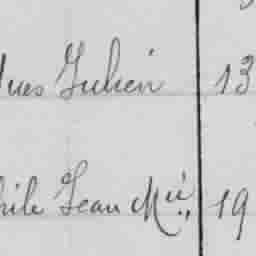 Yves Julien 13
hile Jean Mie, 19